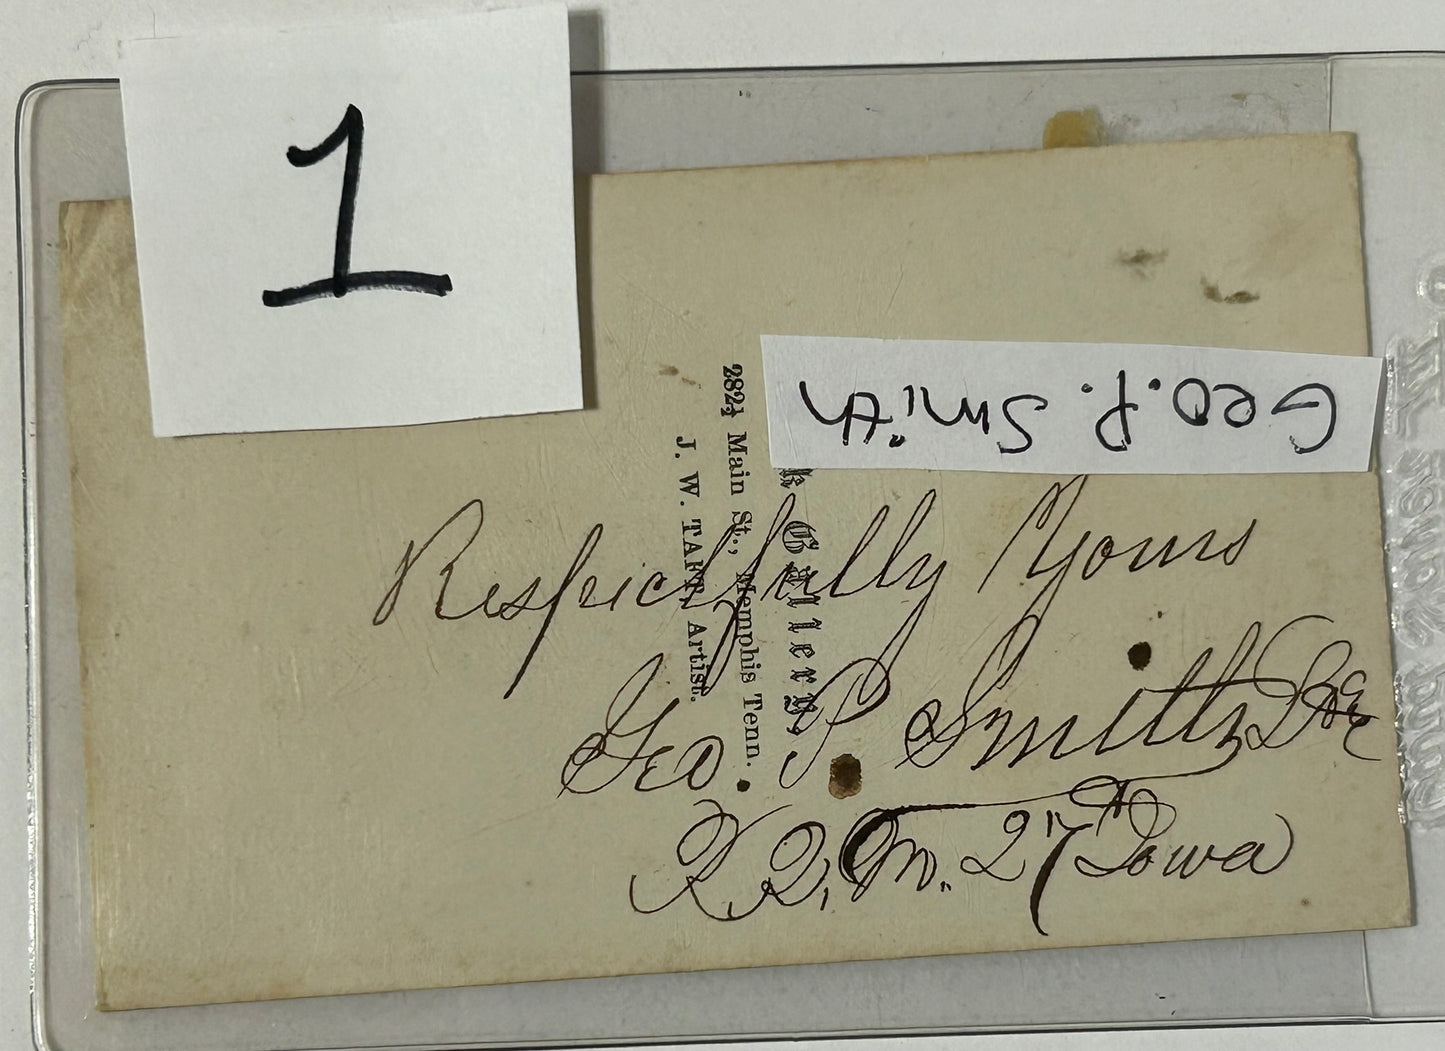 1
Geo. P. Smith
Gallery,
282½ Main St., Memphis Tenn.
J. W. TAFT, Artist.
Respectfully Yours
Geo. P. Smith
R. Q. M. 27th Iowa